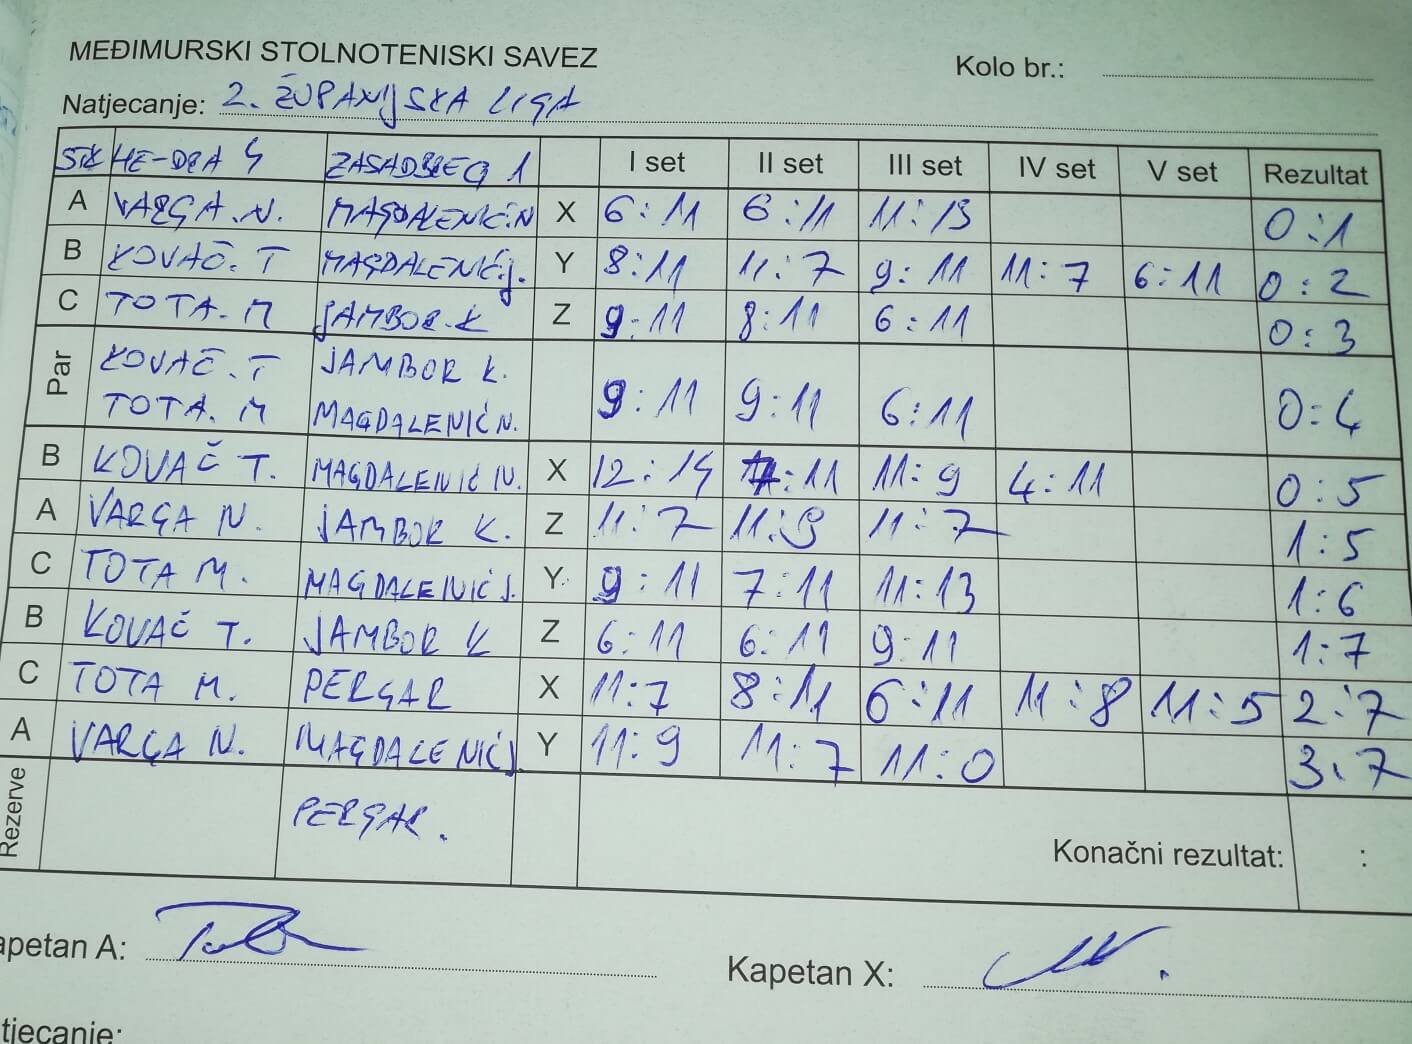 MEĐIMURSKI STOLNOTENISKI SAVEZ
Kolo br.:
Natjecanje: 2. ŽUPANIJSKA LIGA
STK HE-DRA 4 ZASADBREG 1 I set II set III set IV set V set Rezultat
A VARGA.N. MAGDALENIĆ.N X 6:11 6:11 11:13 0:1
B KOVAČ.T MAGDALENIĆ.J. Y 8:11 11:7 9:11 11:7 6:11 0:2
C TOTA.M JAMBOR.K Z 9:11 8:11 6:11 0:3
Par KOVAČ.T JAMBOR K. 9:11 9:11 6:11 0:4
TOTA.M MAGDALENIĆ N.
B KOVAČ T. MAGDALENIĆ N. X 12:14 :11 11:9 4:11 0:5
A VARGA N. JAMBOR K. Z 11:7 11:9 11:7 1:5
C TOTA M. MAGDALENIĆ J. Y 9:11 7:11 11:13 1:6
B KOVAČ T. JAMBOR K Z 6:11 6:11 9:11 1:7
C TOTA M. PERGAR X 11:7 8:11 6:11 11:8 11:5 2:7
A VARGA N. MAGDALENIĆ J Y 11:9 11:7 11:0 3:7
Rezerve PERGAR.
Konačni rezultat: :
apetan A:
Kapetan X:
tjecanje: